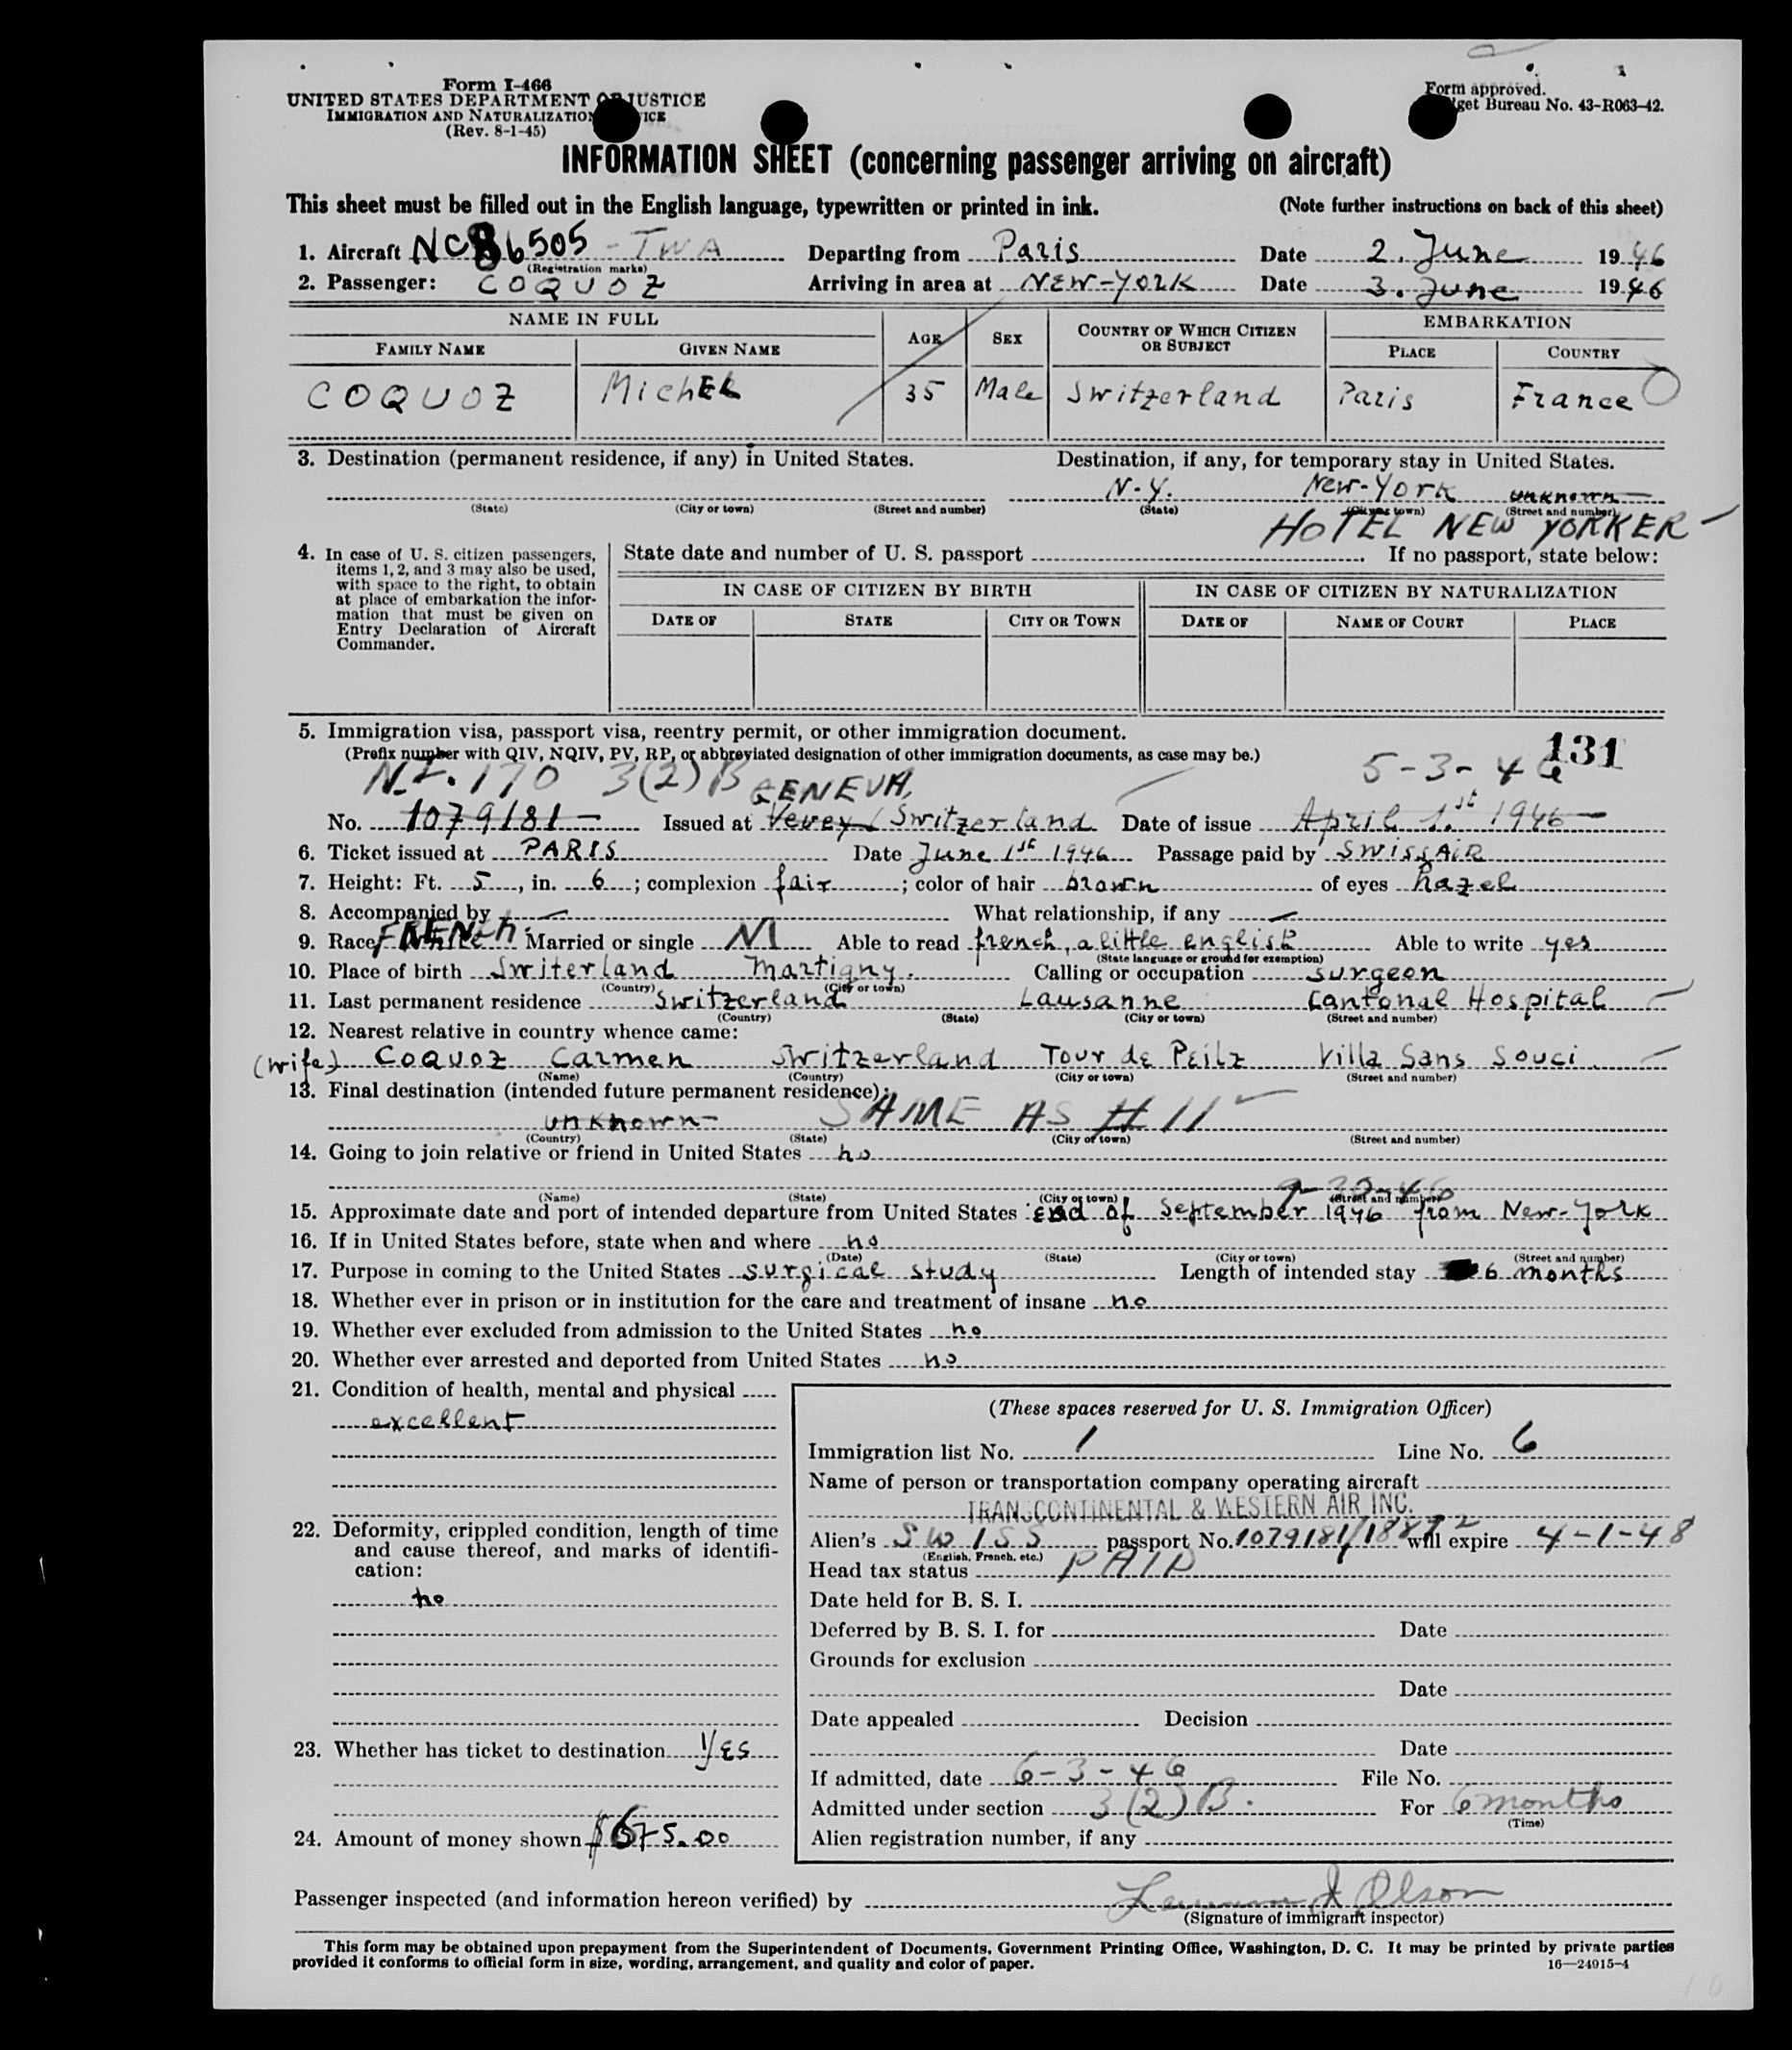 Form I-466
UNITED STATES DEPARTMENT OF JUSTICE
IMMIGRATION AND NATURALIZATION SERVICE
(Rev. 8-1-45)
Form approved.
Budget Bureau No. 43-R063-42.
INFORMATION SHEET (concerning passenger arriving on aircraft)
This sheet must be filled out in the English language, typewritten or printed in ink. (Note further instructions on back of this sheet)
1. Aircraft NC86505 - TWA Departing from Paris Date 2. June 1946
(Registration marks)
2. Passenger: COQUOZ Arriving in area at NEW-YORK Date 3. June 1946
NAME IN FULL AGE SEX COUNTRY OF WHICH CITIZEN OR SUBJECT EMBARKATION
FAMILY NAME GIVEN NAME PLACE COUNTRY
COQUOZ MichEL 35 Male Switzerland Paris France
3. Destination (permanent residence, if any) in United States. Destination, if any, for temporary stay in United States.
N-Y. New-York unknown
(State) (City or town) (Street and number) (State) (City or town) (Street and number)
HOTEL NEW YORKER
4. In case of U. S. citizen passengers, items 1, 2, and 3 may also be used, with space to the right, to obtain at place of embarkation the information that must be given on Entry Declaration of Aircraft Commander.
State date and number of U. S. passport If no passport, state below:
IN CASE OF CITIZEN BY BIRTH IN CASE OF CITIZEN BY NATURALIZATION
DATE OF STATE CITY OR TOWN DATE OF NAME OF COURT PLACE
5. Immigration visa, passport visa, reentry permit, or other immigration document.
(Prefix number with QIV, NQIV, PV, RP, or abbreviated designation of other immigration documents, as case may be.)
131
N.I. 170 3(2)B GENEVA, 5-3-46
No. 1079181 Issued at Vevey / Switzerland Date of issue April 1.st 1946
6. Ticket issued at PARIS Date June 1st 1946 Passage paid by SWISSAIR
7. Height: Ft. 5, in. 6; complexion fair; color of hair brown of eyes hazel
8. Accompanied by — What relationship, if any —
9. Race white FRENCH. Married or single M Able to read french, a little english Able to write yes
(State language or ground for exemption)
10. Place of birth Switerland Martigny. Calling or occupation surgeon
(Country) (City or town)
11. Last permanent residence Switzerland Lausanne Cantonal Hospital
(Country) (State) (City or town) (Street and number)
12. Nearest relative in country whence came:
(wife) Coquoz Carmen Switzerland Tour de Peilz Villa Sans Souci
(Name) (Country) (City or town) (Street and number)
13. Final destination (intended future permanent residence):
unknown SAME AS # 11
(Country) (State) (City or town) (Street and number)
14. Going to join relative or friend in United States no
(Name) (State) (City or town) (Street and number)
9-30-46
15. Approximate date and port of intended departure from United States: End of September 1946 from New-York
16. If in United States before, state when and where no
(Date) (State) (City or town) (Street and number)
17. Purpose in coming to the United States surgical study Length of intended stay 6 months
18. Whether ever in prison or in institution for the care and treatment of insane no
19. Whether ever excluded from admission to the United States no
20. Whether ever arrested and deported from United States no
21. Condition of health, mental and physical
excellent
22. Deformity, crippled condition, length of time and cause thereof, and marks of identification:
no
23. Whether has ticket to destination YES
24. Amount of money shown $675.00
(These spaces reserved for U. S. Immigration Officer)
Immigration list No. 1 Line No. 6
Name of person or transportation company operating aircraft
TRANSCONTINENTAL & WESTERN AIR INC.
Alien's SWISS passport No. 1079181/18872 will expire 4-1-48
(English, French, etc.)
Head tax status PAID
Date held for B. S. I.
Deferred by B. S. I. for Date
Grounds for exclusion
Date
Date appealed Decision
Date
If admitted, date 6-3-46 File No.
Admitted under section 3(2)B. For 6 months
(Time)
Alien registration number, if any
Passenger inspected (and information hereon verified) by Olson
(Signature of immigrant inspector)
This form may be obtained upon prepayment from the Superintendent of Documents, Government Printing Office, Washington, D. C. It may be printed by private parties
provided it conforms to official form in size, wording, arrangement, and quality and color of paper.
16—24915-4